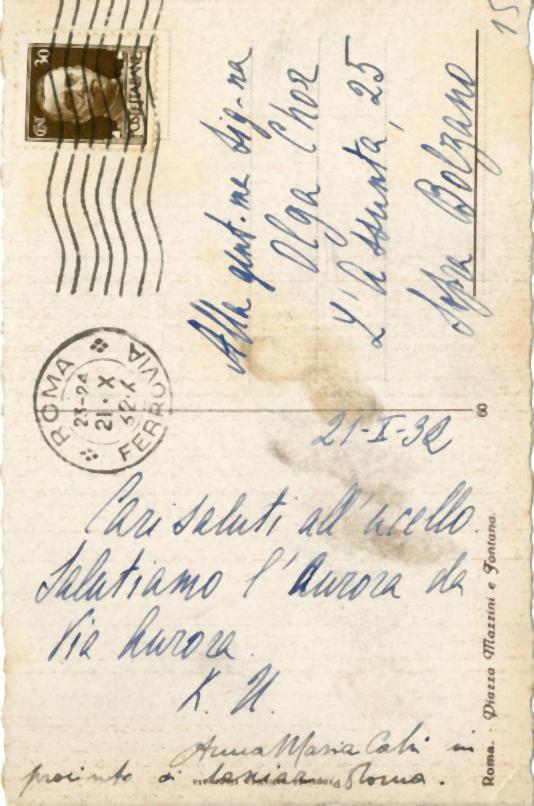 15
30
POSTE ITALIANE
ROMA
23-24
21·X
42·X
FERROVIA
Alla gent.ma Sig-na
Olga Chor
L'Assunta, 25
Sopra Bolzano
60
21-X-32
Cari saluti all'ucello
Salutiamo l'Aurora da
Via Aurora.
K. U.
Anna Maria Calvi in
procinto di lasciar Roma.
Roma. - Piazza Mazzini e Fontana.